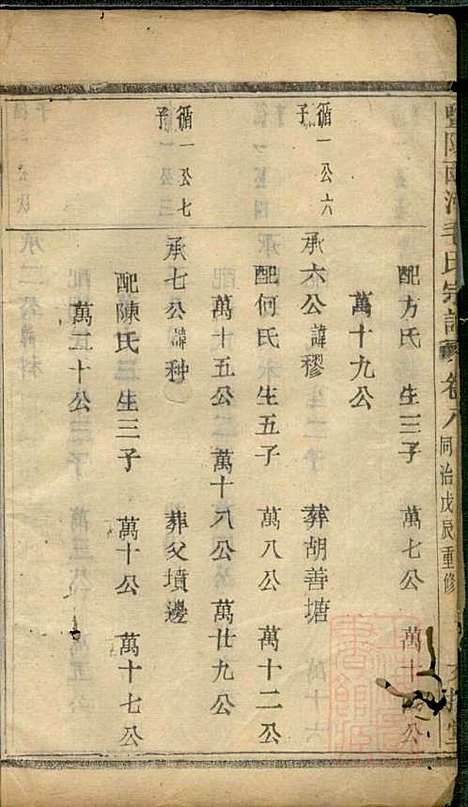 暨陽 毛氏宗譜 卷八 同治戊辰重修
配方氏 生三子 萬七公 萬十 公
萬十九公
循一公六子
承六公諱穆 葬胡善塘
配何氏 生五子 萬八公 萬十二公
萬十五公 萬十八公 萬廿九公
循一公七子
承七公諱种 葬父墳邊
配陳氏 生三子 萬十公 萬十七公
萬二十公